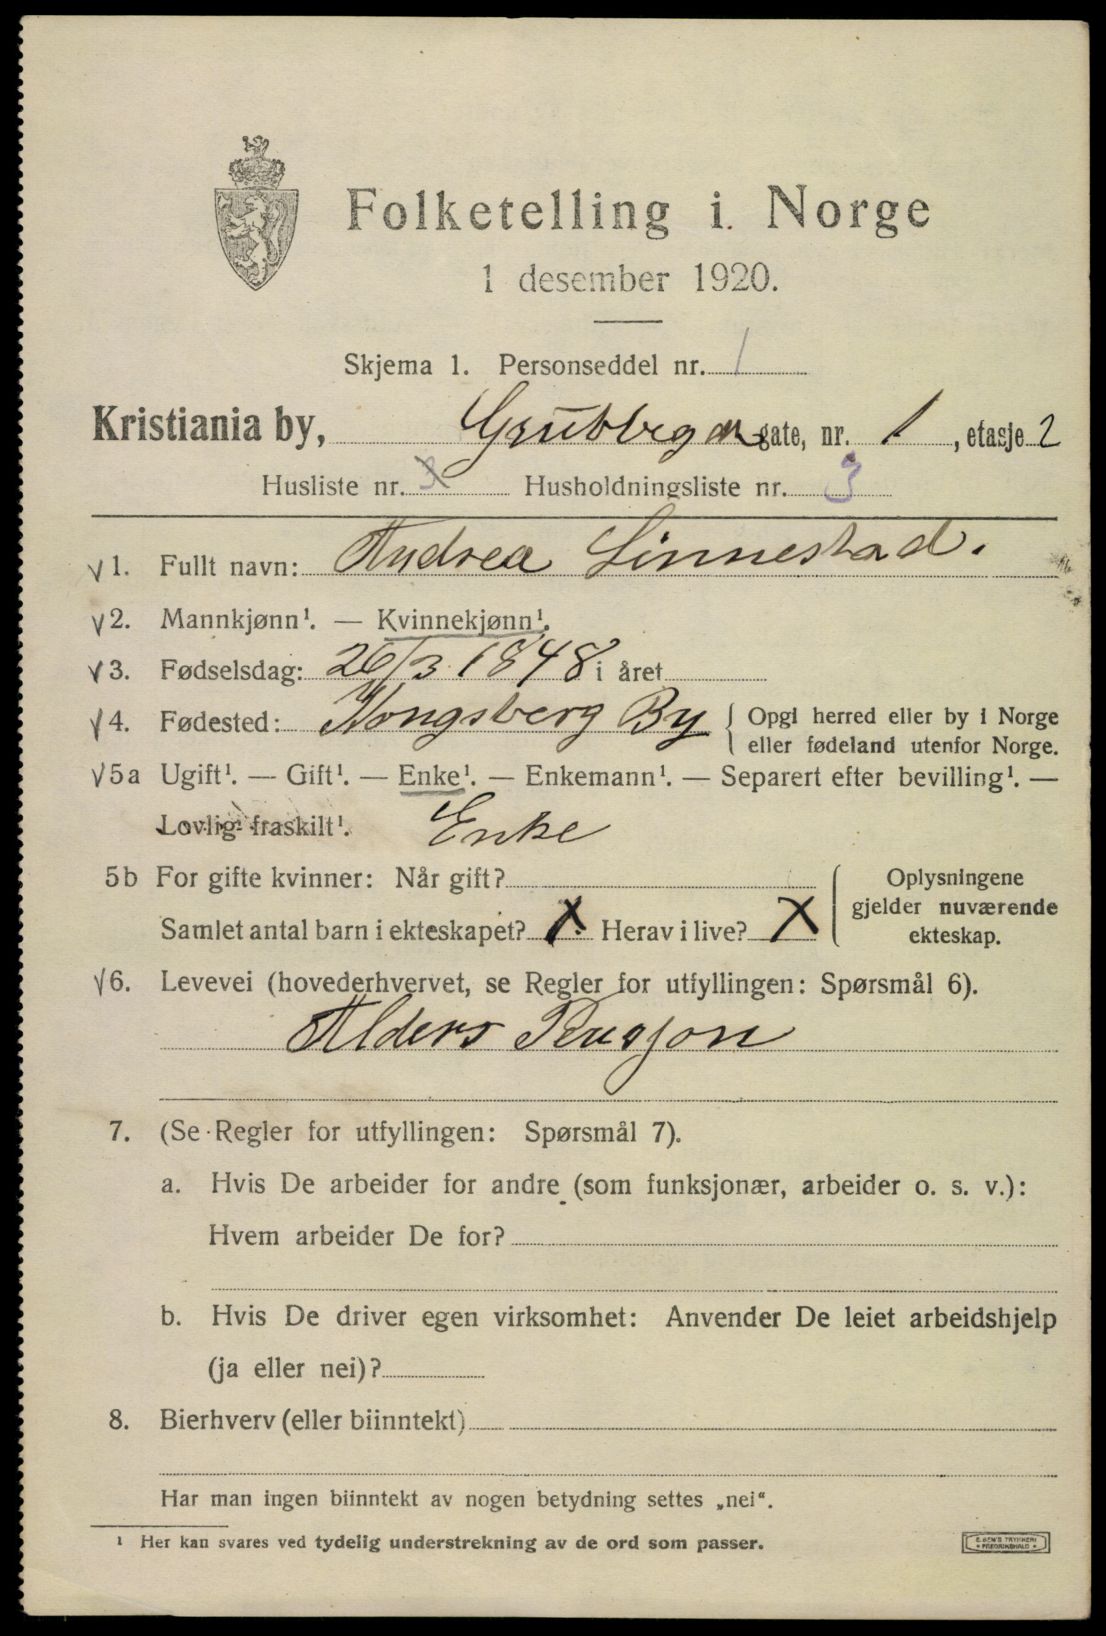 Folketelling i Norge
1 desember 1920.
Skjema 1. Personseddel nr. 1
Kristiania by, Grubbegd gate, nr. 1, etasje 2
Husliste nr. 3 Husholdningsliste nr. 3
√1. Fullt navn: Andrea Linnestad.
√2. Mannkjønn¹. — Kvinnekjønn¹.
√3. Fødselsdag: 26/3 1848 i året
√4. Fødested: Kongsberg By { Opgi herred eller by i Norge
eller fødeland utenfor Norge.
√5a Ugift¹. — Gift¹. — Enke¹. — Enkemann¹. — Separert efter bevilling¹. —
Lovlig fraskilt¹. Enke
5b For gifte kvinner: Når gift?
Samlet antal barn i ekteskapet? X Herav i live? X
Oplysningene
gjelder nuværende
ekteskap.
√6. Levevei (hovederhvervet, se Regler for utfyllingen: Spørsmål 6).
Alders Pensjon
7. (Se Regler for utfyllingen: Spørsmål 7).
a. Hvis De arbeider for andre (som funksjonær, arbeider o. s. v.):
Hvem arbeider De for?
b. Hvis De driver egen virksomhet: Anvender De leiet arbeidshjelp
(ja eller nei)?
8. Bierhverv (eller biinntekt)
Har man ingen biinntekt av nogen betydning settes „nei“.
¹ Her kan svares ved tydelig understrekning av de ord som passer.